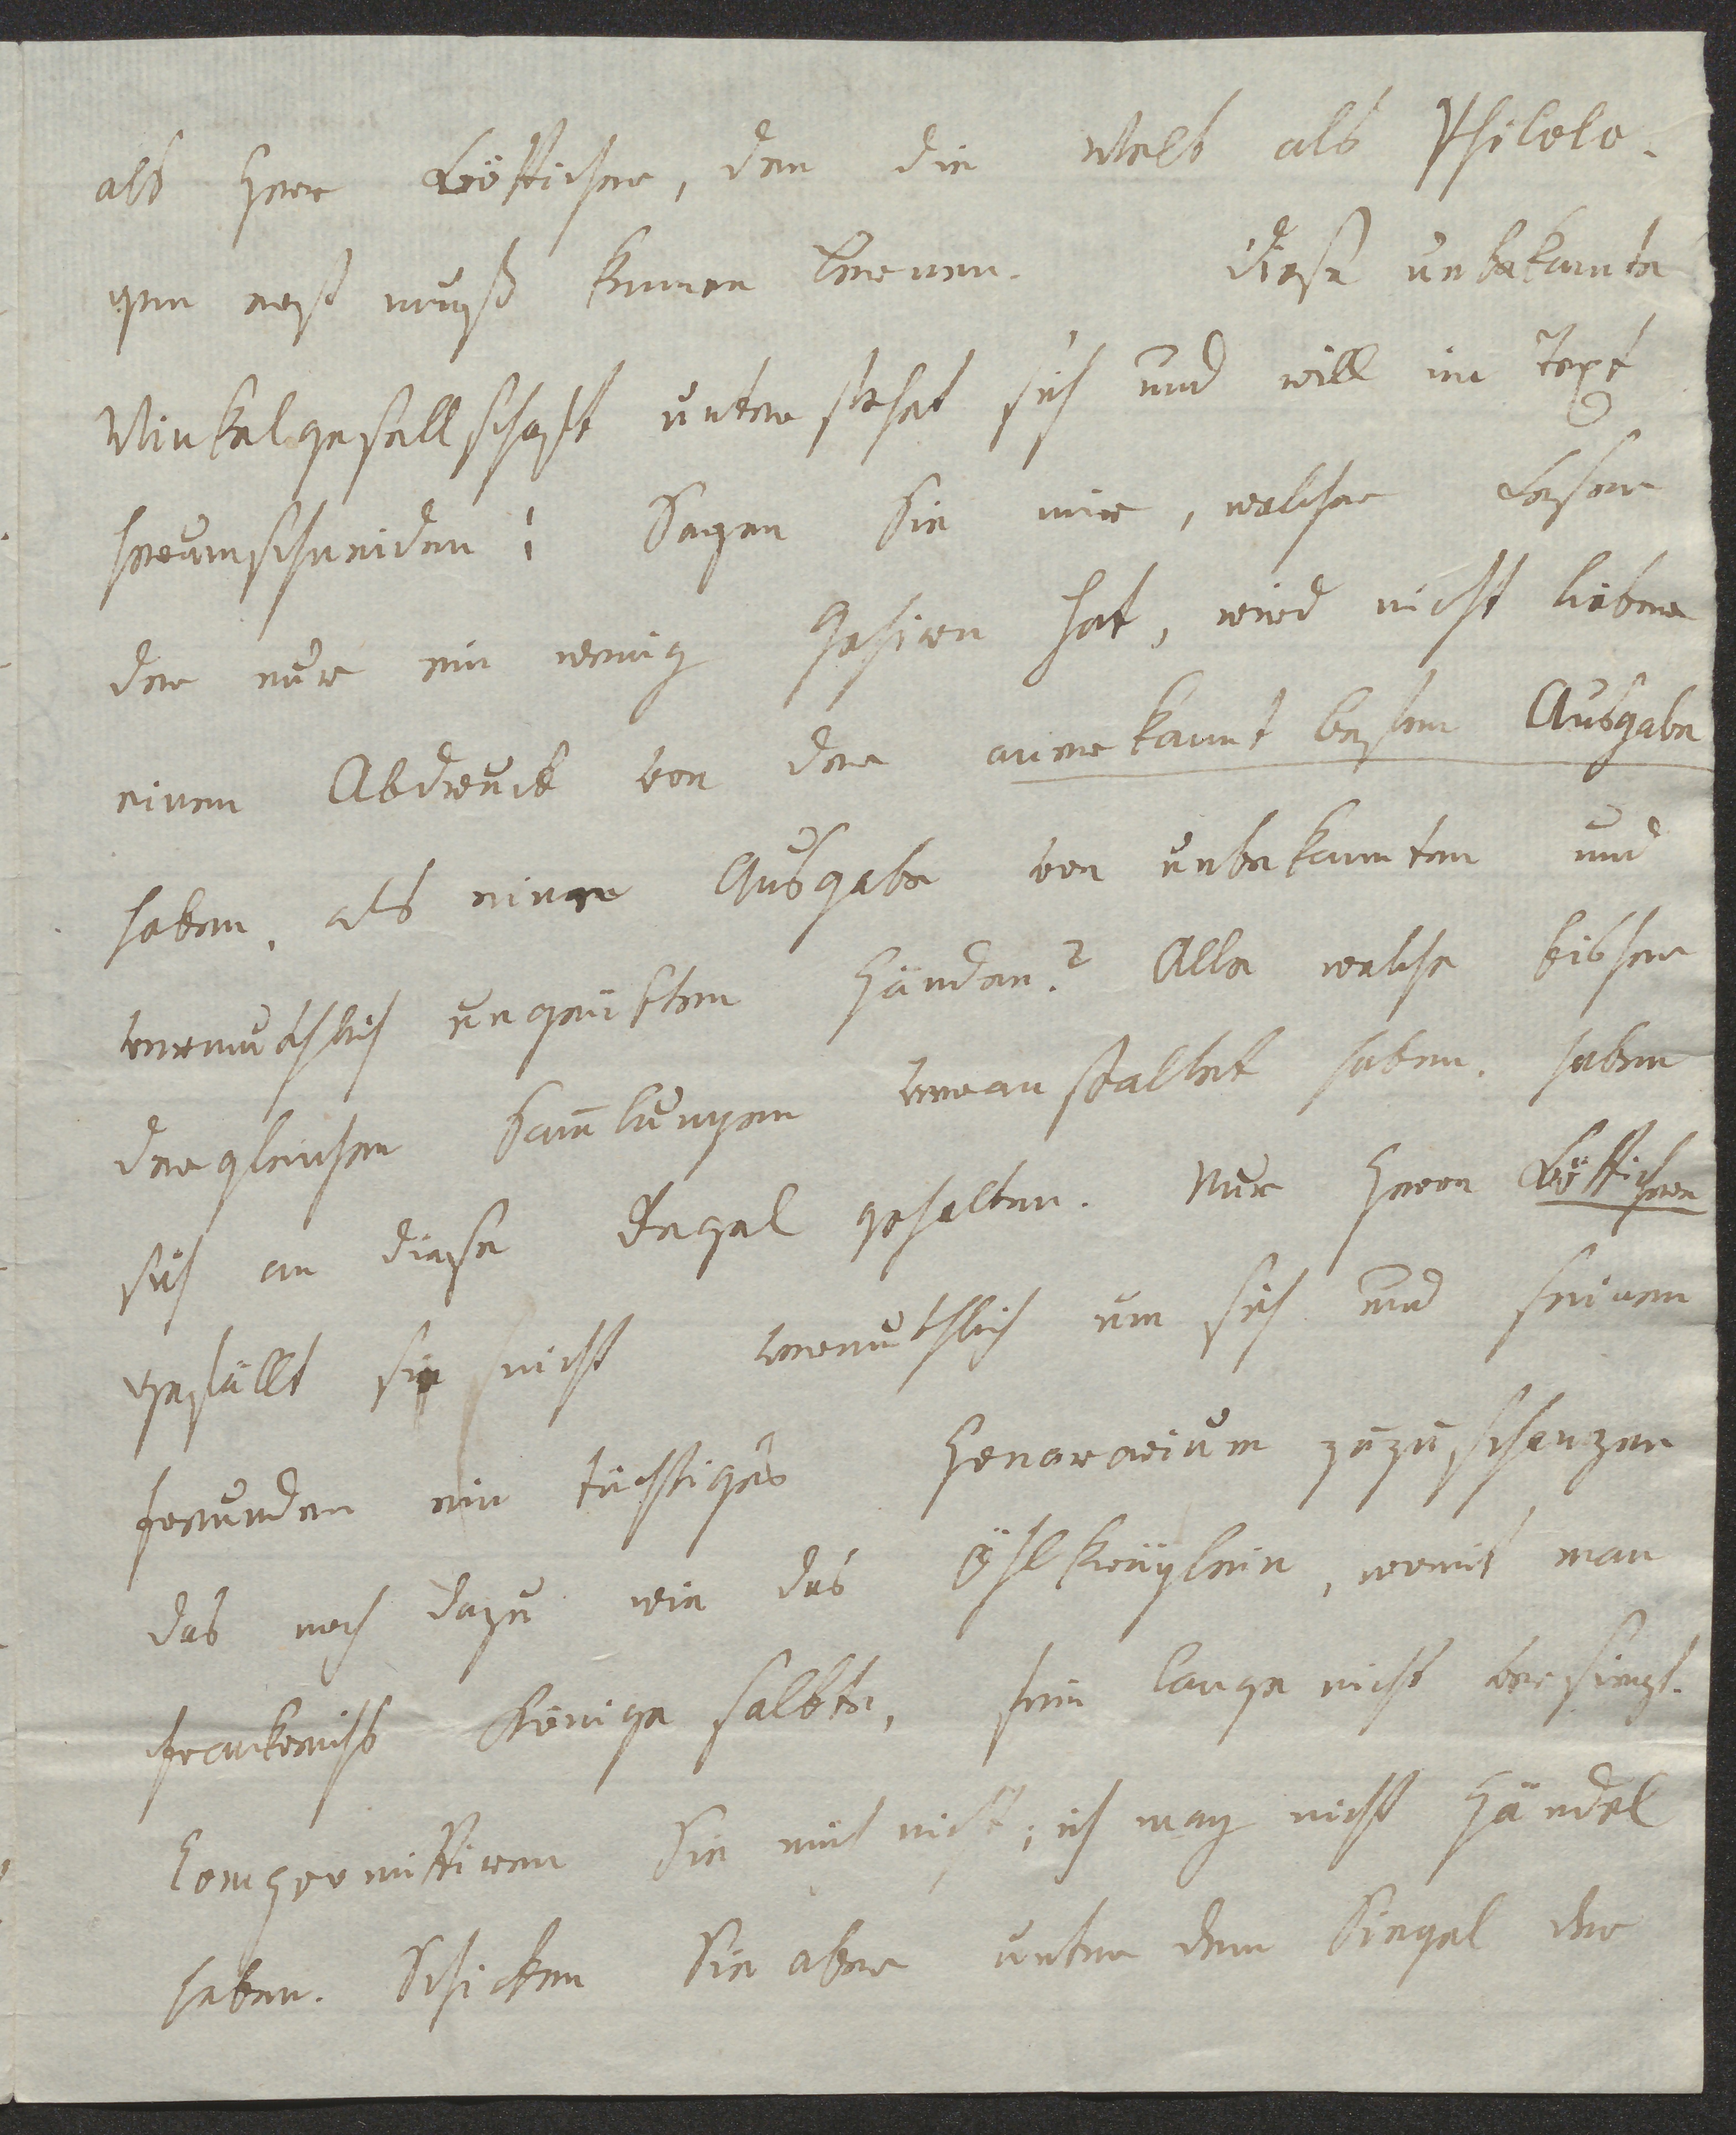 als Herr Bötticher, den die Welt als Philolo-
gen erst muß kennen lernen. Diese unbekannte
Winkelgesellschaft untersteht sich und will im Text
herumschneiden! Sagen Sie mir, welcher Leser
der nur ein wenig Gehirn hat, wird nicht lieber
einen Abdruck von der anerkannt besten Ausgabe
haben, als einer Ausgabe von unbekannten und
vermuthlich ungeübten Händen? Alle welche bisher
dergleichen Sam̅lungen veranstaltet haben, haben
sich an diese Regel gehalten. Nur Herrn Böttichern
gefällt sie nicht vermuthlich um sich und seinen
freunden ein tüchtiges Honorarium zuzuschanzen
das noch dazu wie das Öhlkrüglein, womit man
frankreichs Könige salbte, sein lange nicht versiegt.
Compromittiren Sie mich nicht; ich mag nicht Händel
haben. Schicken Sie aber unter dem Siegel der